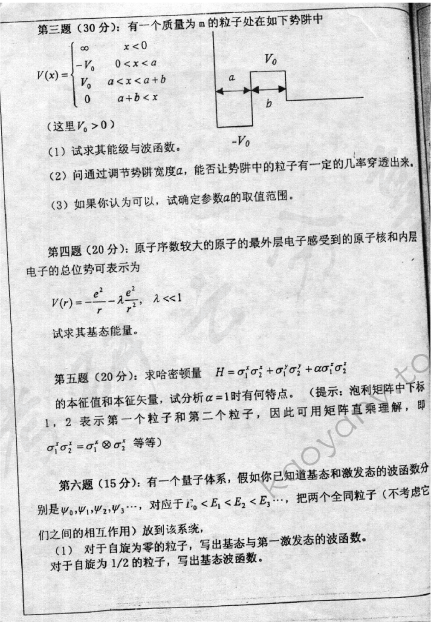 第三题（30分）：有一个质量为m的粒子处在如下势阱中
V(x) = { ∞  x<0
-V₀  0<x<a
V₀  a<x<a+b
0  a+b<x
V₀
a
b
-V₀
（这里V₀>0）
（1）试求其能级与波函数。
（2）问通过调节势阱宽度a，能否让势阱中的粒子有一定的几率穿透出来。
（3）如果你认为可以，试确定参数a的取值范围。
第四题（20分）：原子序数较大的原子的最外层电子感受到的原子核和内层
电子的总位势可表示为
V(r) = -e²/r - λ e²/r², λ<<1
试求其基态能量。
第五题（20分）：求哈密顿量 H = σ₁ˣσ₂ˣ + σ₁ʸσ₂ʸ + ασ₁ᶻσ₂ᶻ
的本征值和本征矢量，试分析α=1时有何特点。（提示：泡利矩阵中下标
1，2 表示第一个粒子和第二个粒子，因此可用矩阵直乘理解，即
σ₁ˣσ₂ˣ = σ₁ˣ⊗σ₂ˣ 等等）
第六题（15分）：有一个量子体系，假如你已知道基态和激发态的波函数分
别是ψ₀,ψ₁,ψ₂,ψ₃…，对应于E₀<E₁<E₂<E₃…，把两个全同粒子（不考虑它
们之间的相互作用）放到该系统，
（1） 对于自旋为零的粒子，写出基态与第一激发态的波函数。
对于自旋为 1/2 的粒子，写出基态波函数。